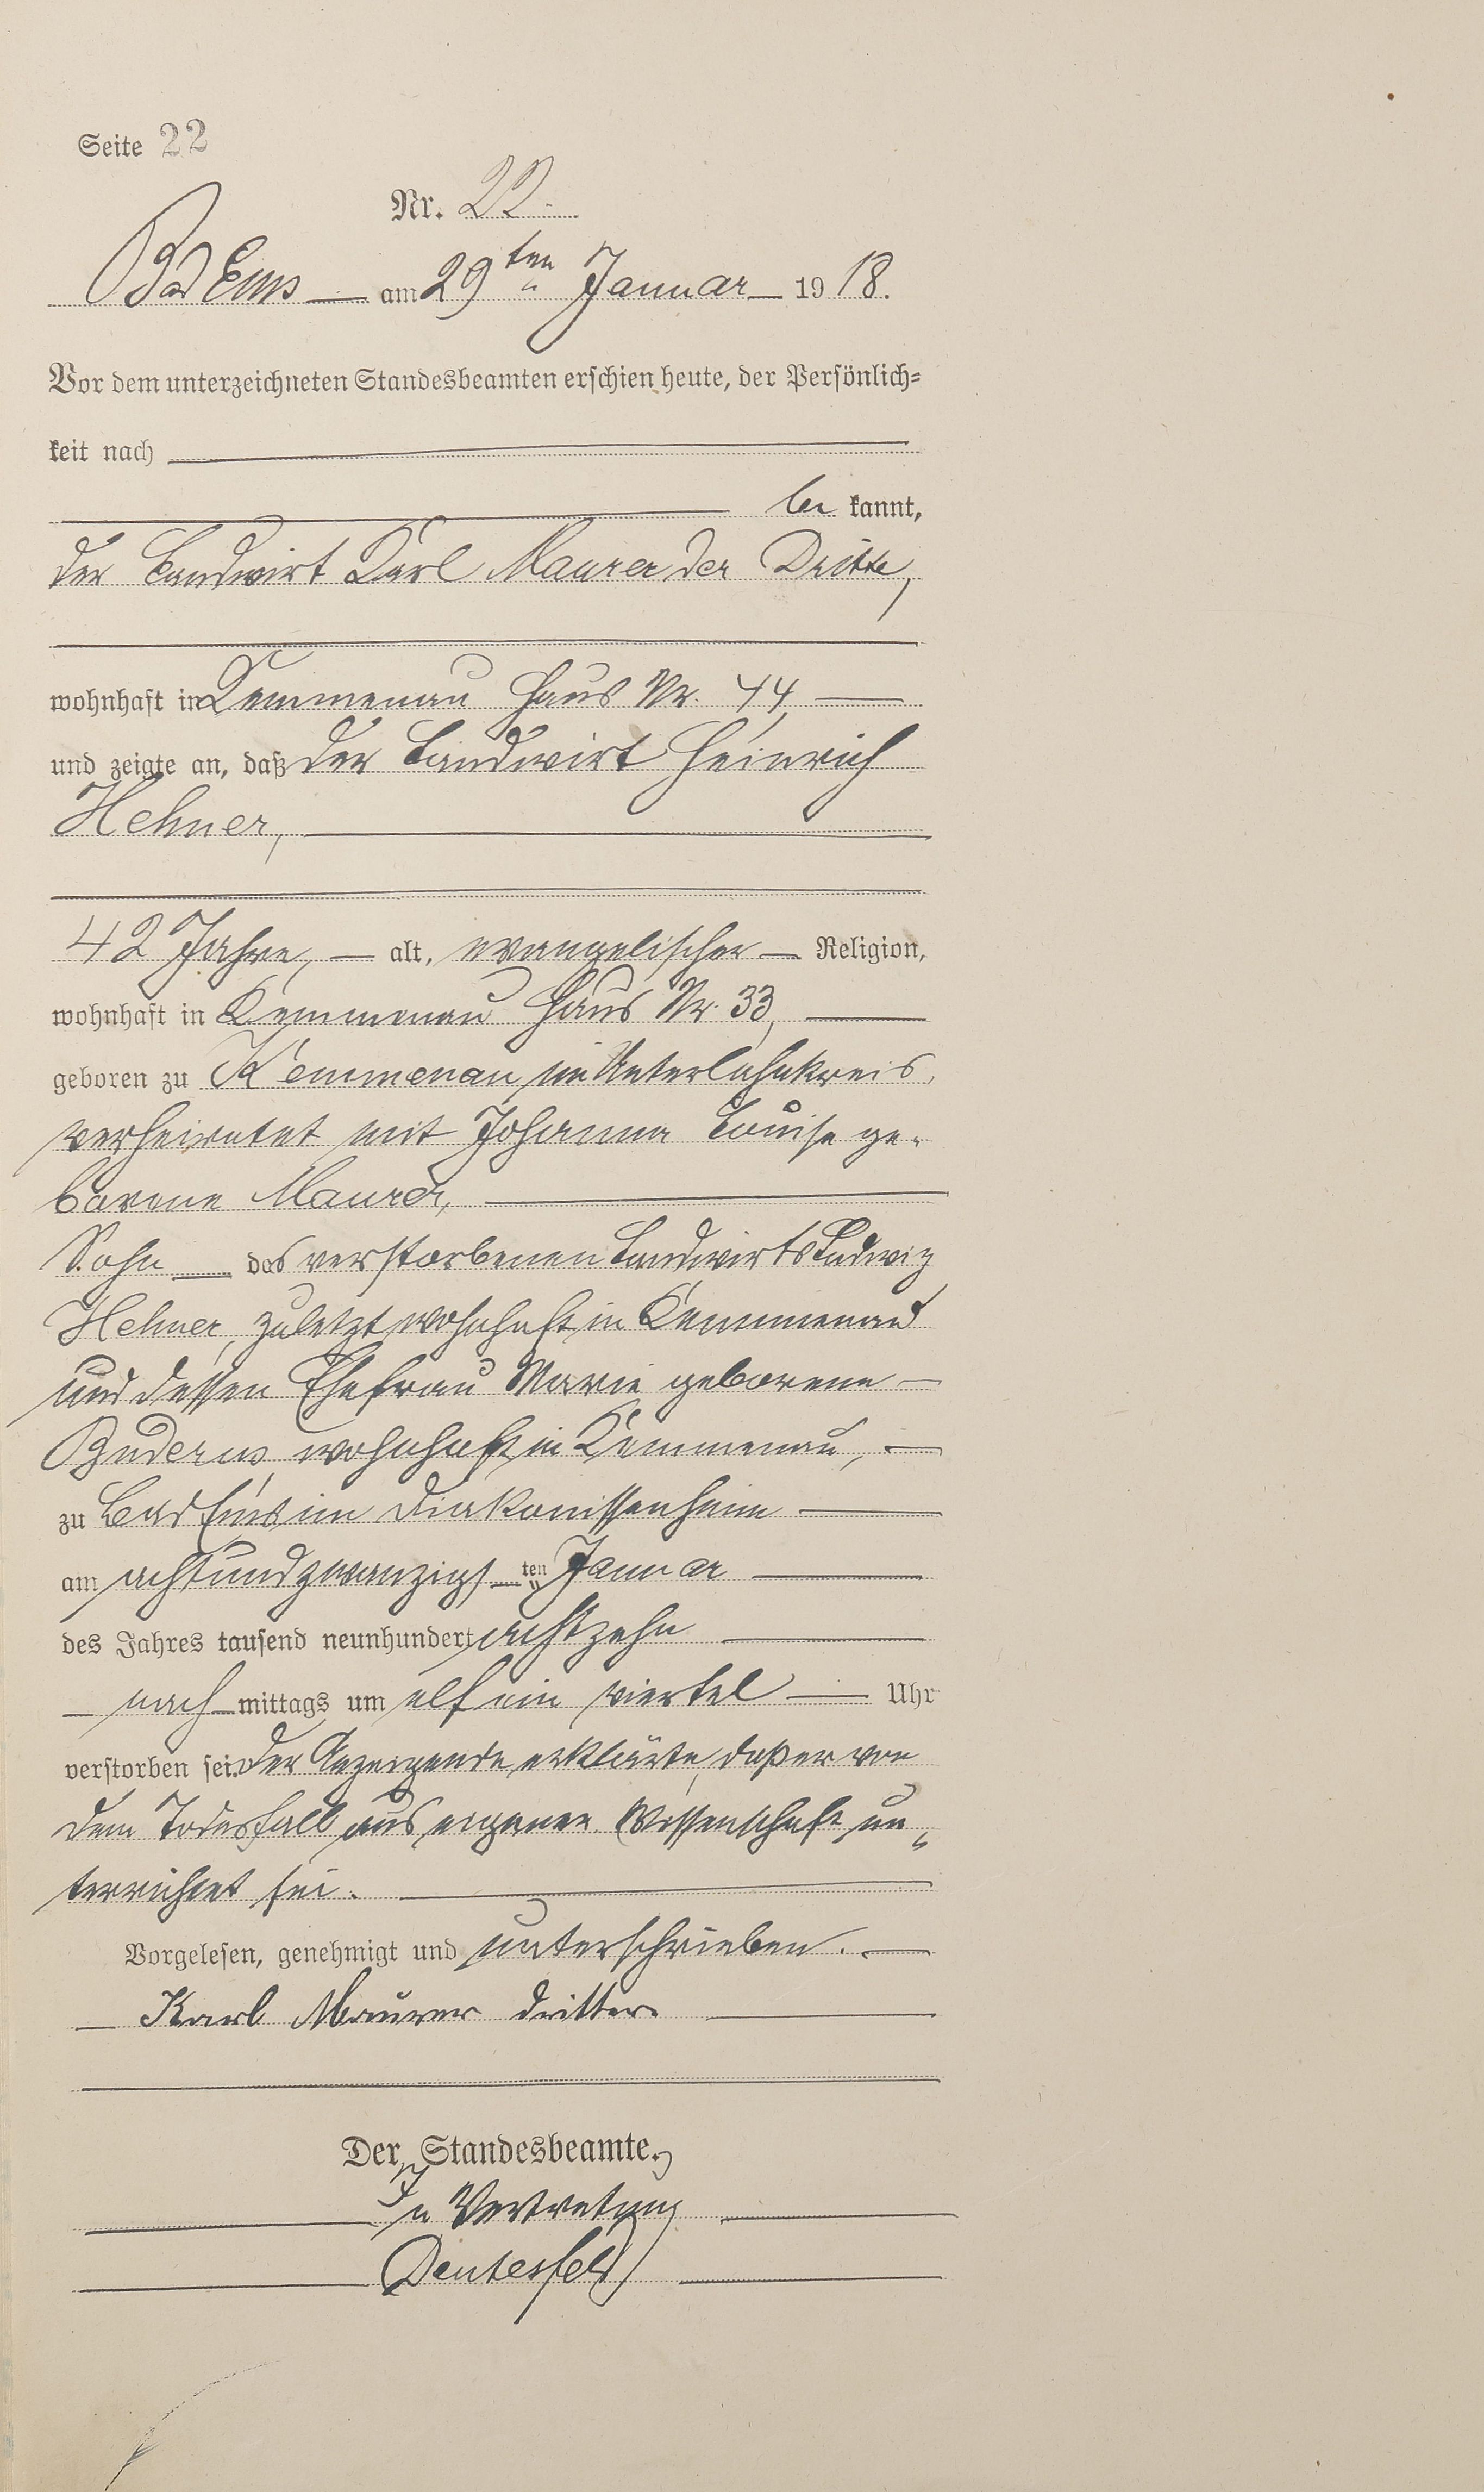 Seite 22
Nr. 22.
Bad Ems am 29ten Januar 1918.
Vor dem unterzeichneten Standesbeamten erschien heute, der Persönlich=
keit nach
be kannt,
der Landwirt Karl Maurer der Dritte,
wohnhaft in Kemmenau Haus Nr. 44,
und zeigte an, daß der Landwirt Heinrich
Hehner,
42 Jahre, alt, evangelischer Religion,
wohnhaft in Kemmenau Haus Nr. 33,
geboren zu Kemmenau im Unterlahnkreis,
verheiratet mit Johanna Louise ge-
borene Maurer,
Sohn des verstorbenen Landwirts Ludwig
Hehner, zuletzt wohnhaft in Kemmenau
und dessen Ehefrau Marie geborene
Buderus, wohnhaft in Kemmenau,
zu Bad Ems im Diakonissenheim
am achtundzwanzigsten Januar
des Jahres tausend neunhundert achtzehn
nachmittags um elf ein viertel Uhr
verstorben sei. Der Anzeigende erklärte, daß er von
dem Todesfall aus eigener Wissenschaft un-
terrichtet sei.
Vorgelesen, genehmigt und unterschrieben.
Karl Maurer dritter
Der Standesbeamte.
In Vertretung